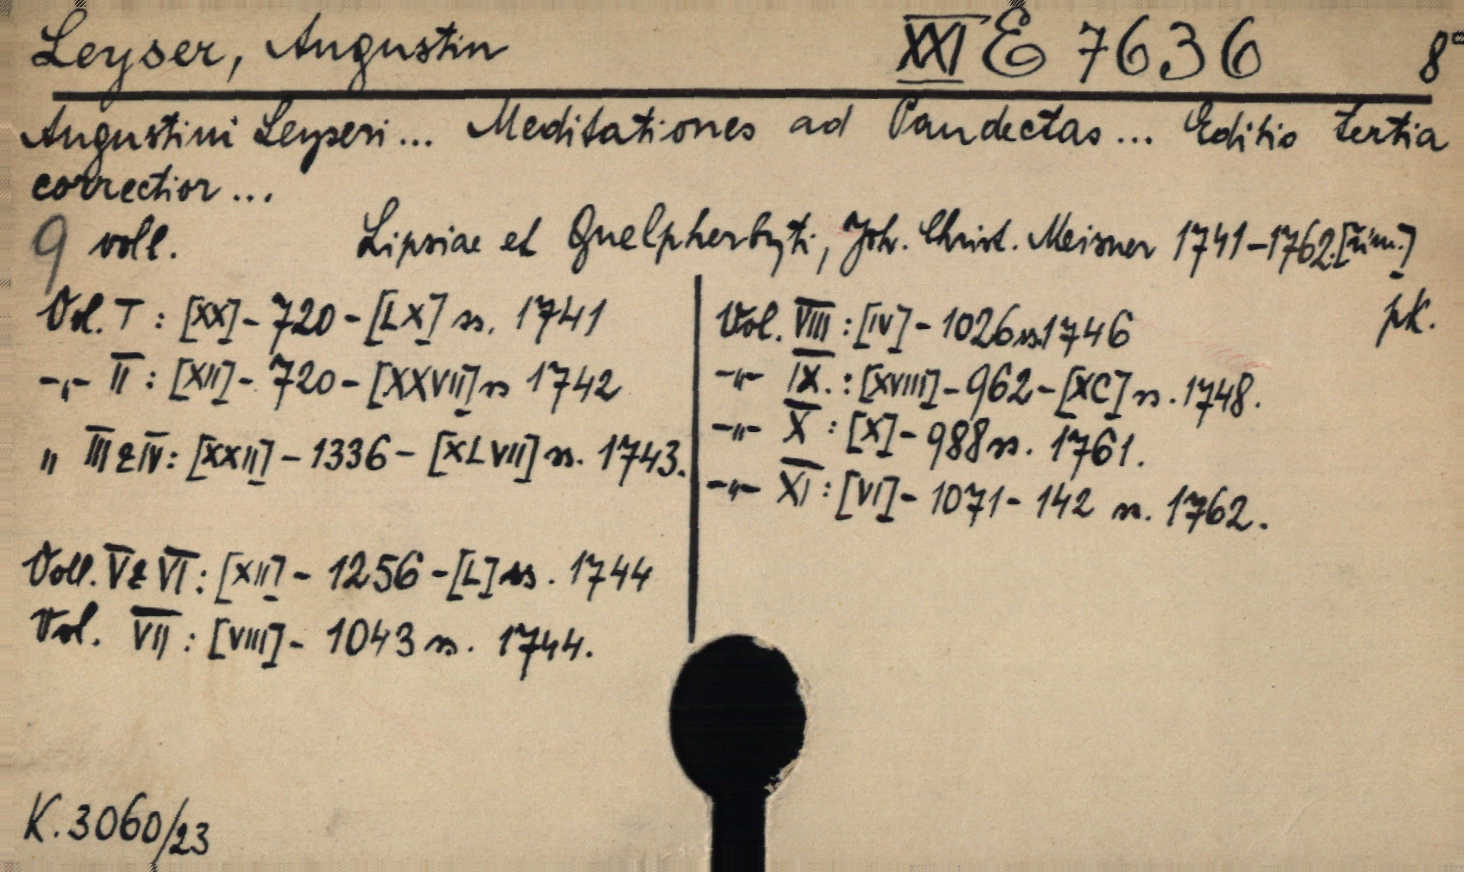 Leyser, Augustin XXI E 7636 8°
Augustini Leyseri... Meditationes ad Pandectas... Editio tertia
correctior...
9 voll. Lipsiae et Guelpherbyti, Joh. Christ. Meisner 1741-1762.
pk.
Vol. I : [XX] - 720 - [LX] ss. 1741
-„- II : [XII] - 720 - [XXVII] ss 1742
„ III & IV : [XXII] - 1336 - [XLVII] ss. 1743.
Voll. V & VI : [XII] - 1256 - [L] ss. 1744
Vol. VII : [VIII] - 1043 ss. 1744.
Vol. VIII : [IV] - 1026 ss. 1746
-„- IX. : [XVIII] - 962 - [XC] ss. 1748.
-„- X : [X] - 988 ss. 1761.
-„- XI : [VI] - 1071 - 142 ss. 1762.
K. 3060/23